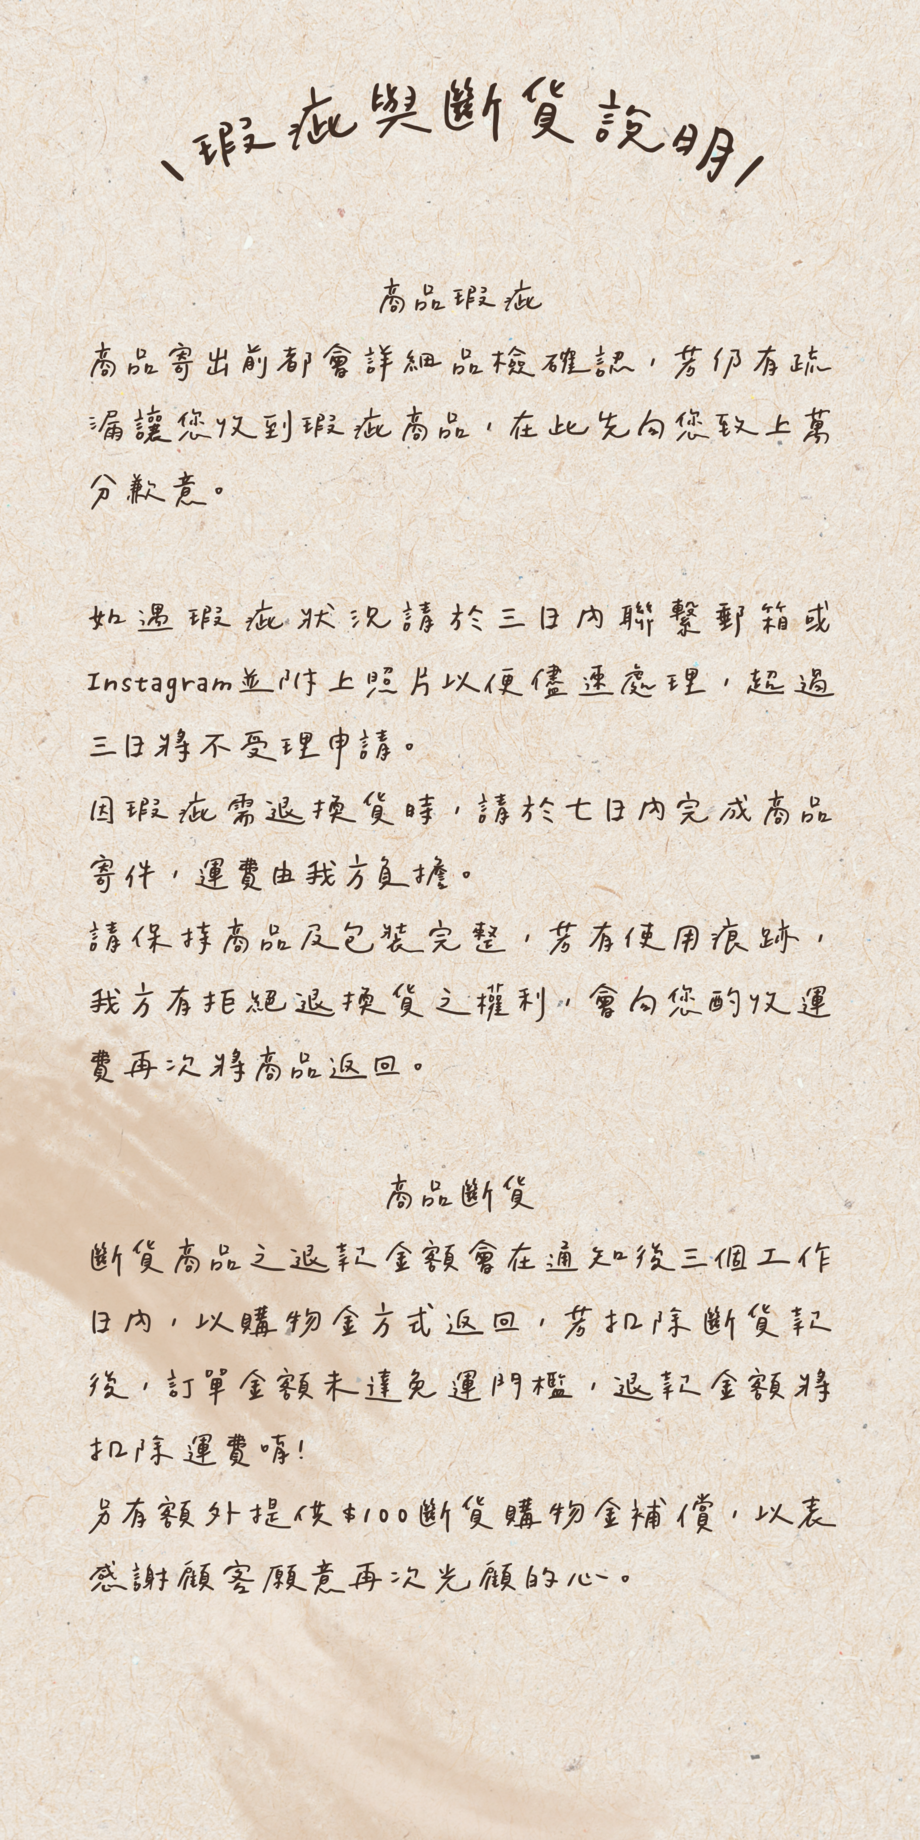 \瑕疵與斷貨說明/
商品瑕疵
商品寄出前都會詳細品檢確認，若仍有疏
漏讓您收到瑕疵商品，在此先向您致上萬
分歉意。
如遇瑕疵狀況請於三日內聯繫郵箱或
Instagram並附上照片以便儘速處理，超過
三日將不受理申請。
因瑕疵需退換貨時，請於七日內完成商品
寄件，運費由我方負擔。
請保持商品及包裝完整，若有使用痕跡，
我方有拒絕退換貨之權利，會向您酌收運
費再次將商品返回。
商品斷貨
斷貨商品之退款金額會在通知後三個工作
日內，以購物金方式返回，若扣除斷貨款
後，訂單金額未達免運門檻，退款金額將
扣除運費唷!
另有額外提供$100斷貨購物金補償，以表
感謝顧客願意再次光顧的心。